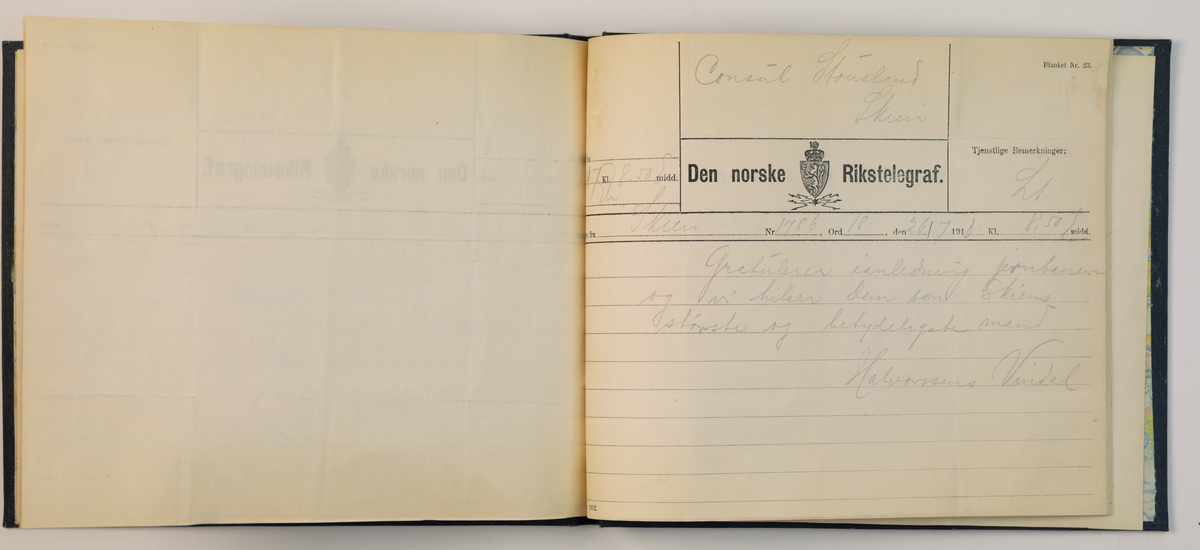 Blanket Nr. 23.
Consul Stousland
Skien
Tjenstlige Bemerkninger:
Den norske Rikstelegraf.
Kl. 8.50 midd.
Lt
fra Skien Nr. 1786, Ord 18, den 20/7 191 Kl. 8.50 midd.
Gratulerer ianledning jernbanen
og vi hilser Dem som Skiens
største og betydeligste mand
Halvorssens Vindal